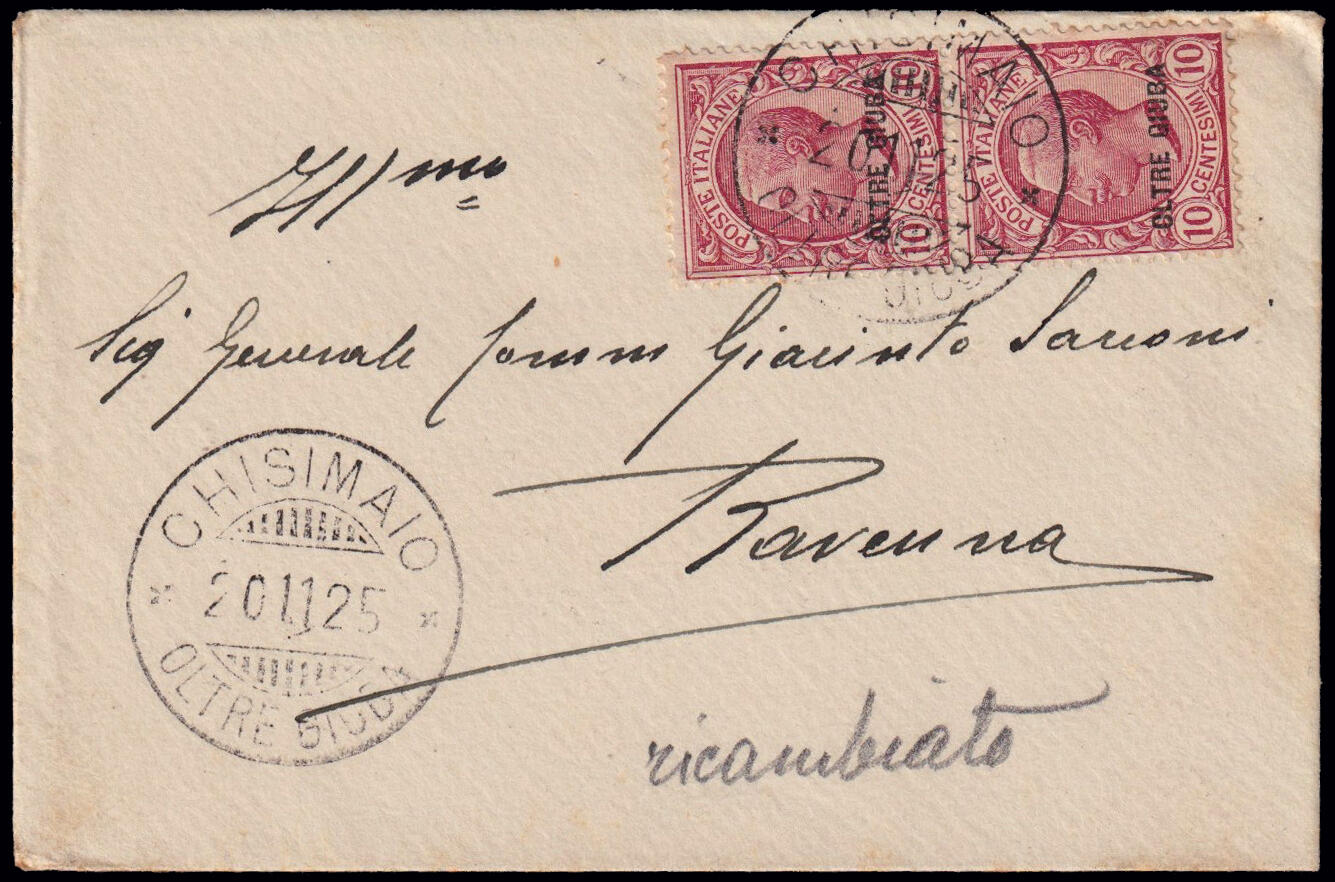 POSTE ITALIANE 10 CENTESIMI 10
OLTRE GIUBA
POSTE ITALIANE 10 CENTESIMI 10
OLTRE GIUBA
CHISIMAIO
OLTRE GIUBA
Illmo
Sig Generale Comm Giacinto Sacconi
Ravenna
CHISIMAIO
20 11 25
OLTRE GIUBA
ricambiato